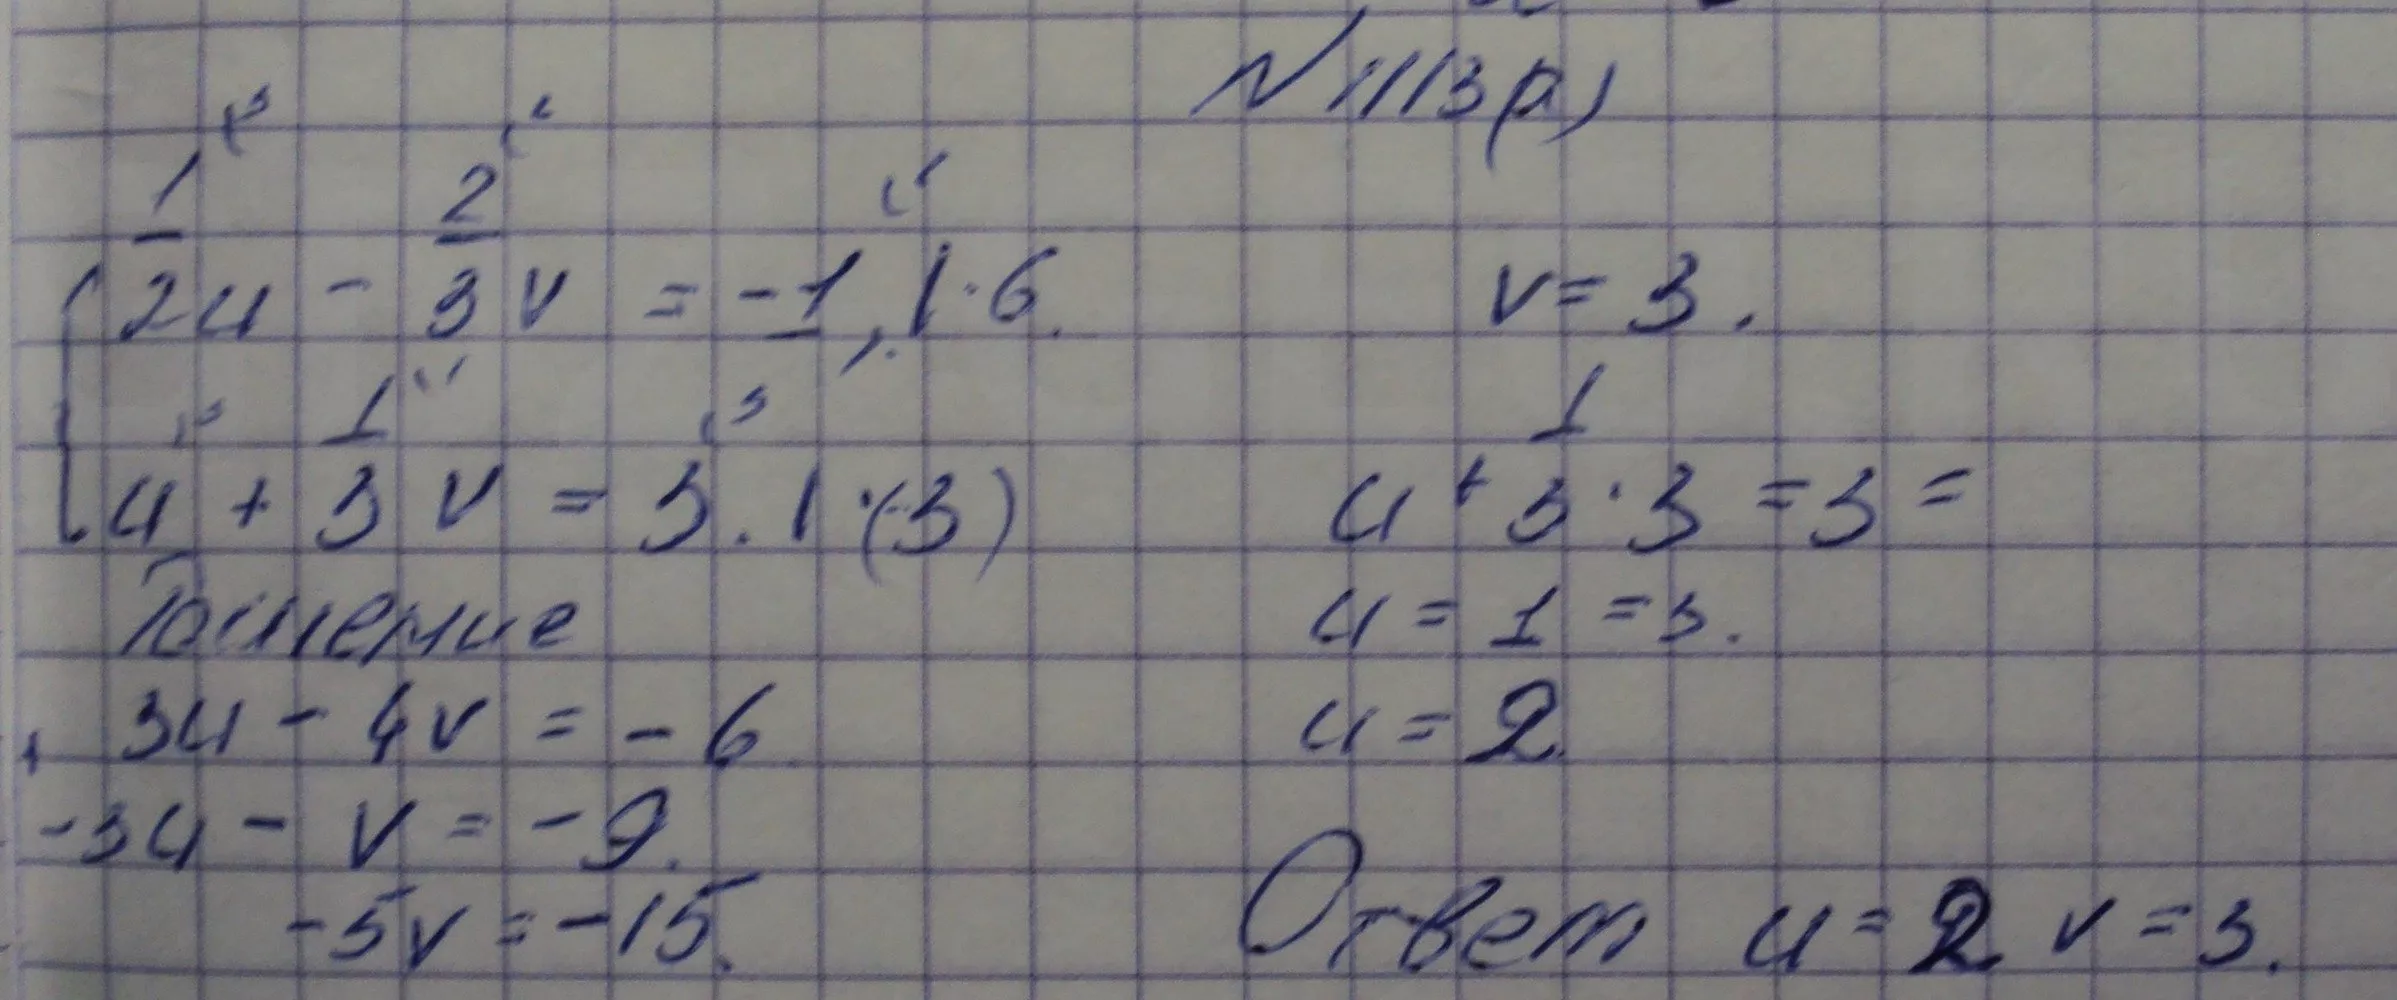 N 1113 а)
1/2 u - 2/3 v = -1, | · 6.
u + 1/3 v = 3. | · (-3)
3u - 4v = - 6
+
-3u - v = - 9.
-5v = -15.
v = 3.
u + 1/3 · 3 = 3 =
u = 1 = 3.
u = 2
Ответ u = 2 v = 3.